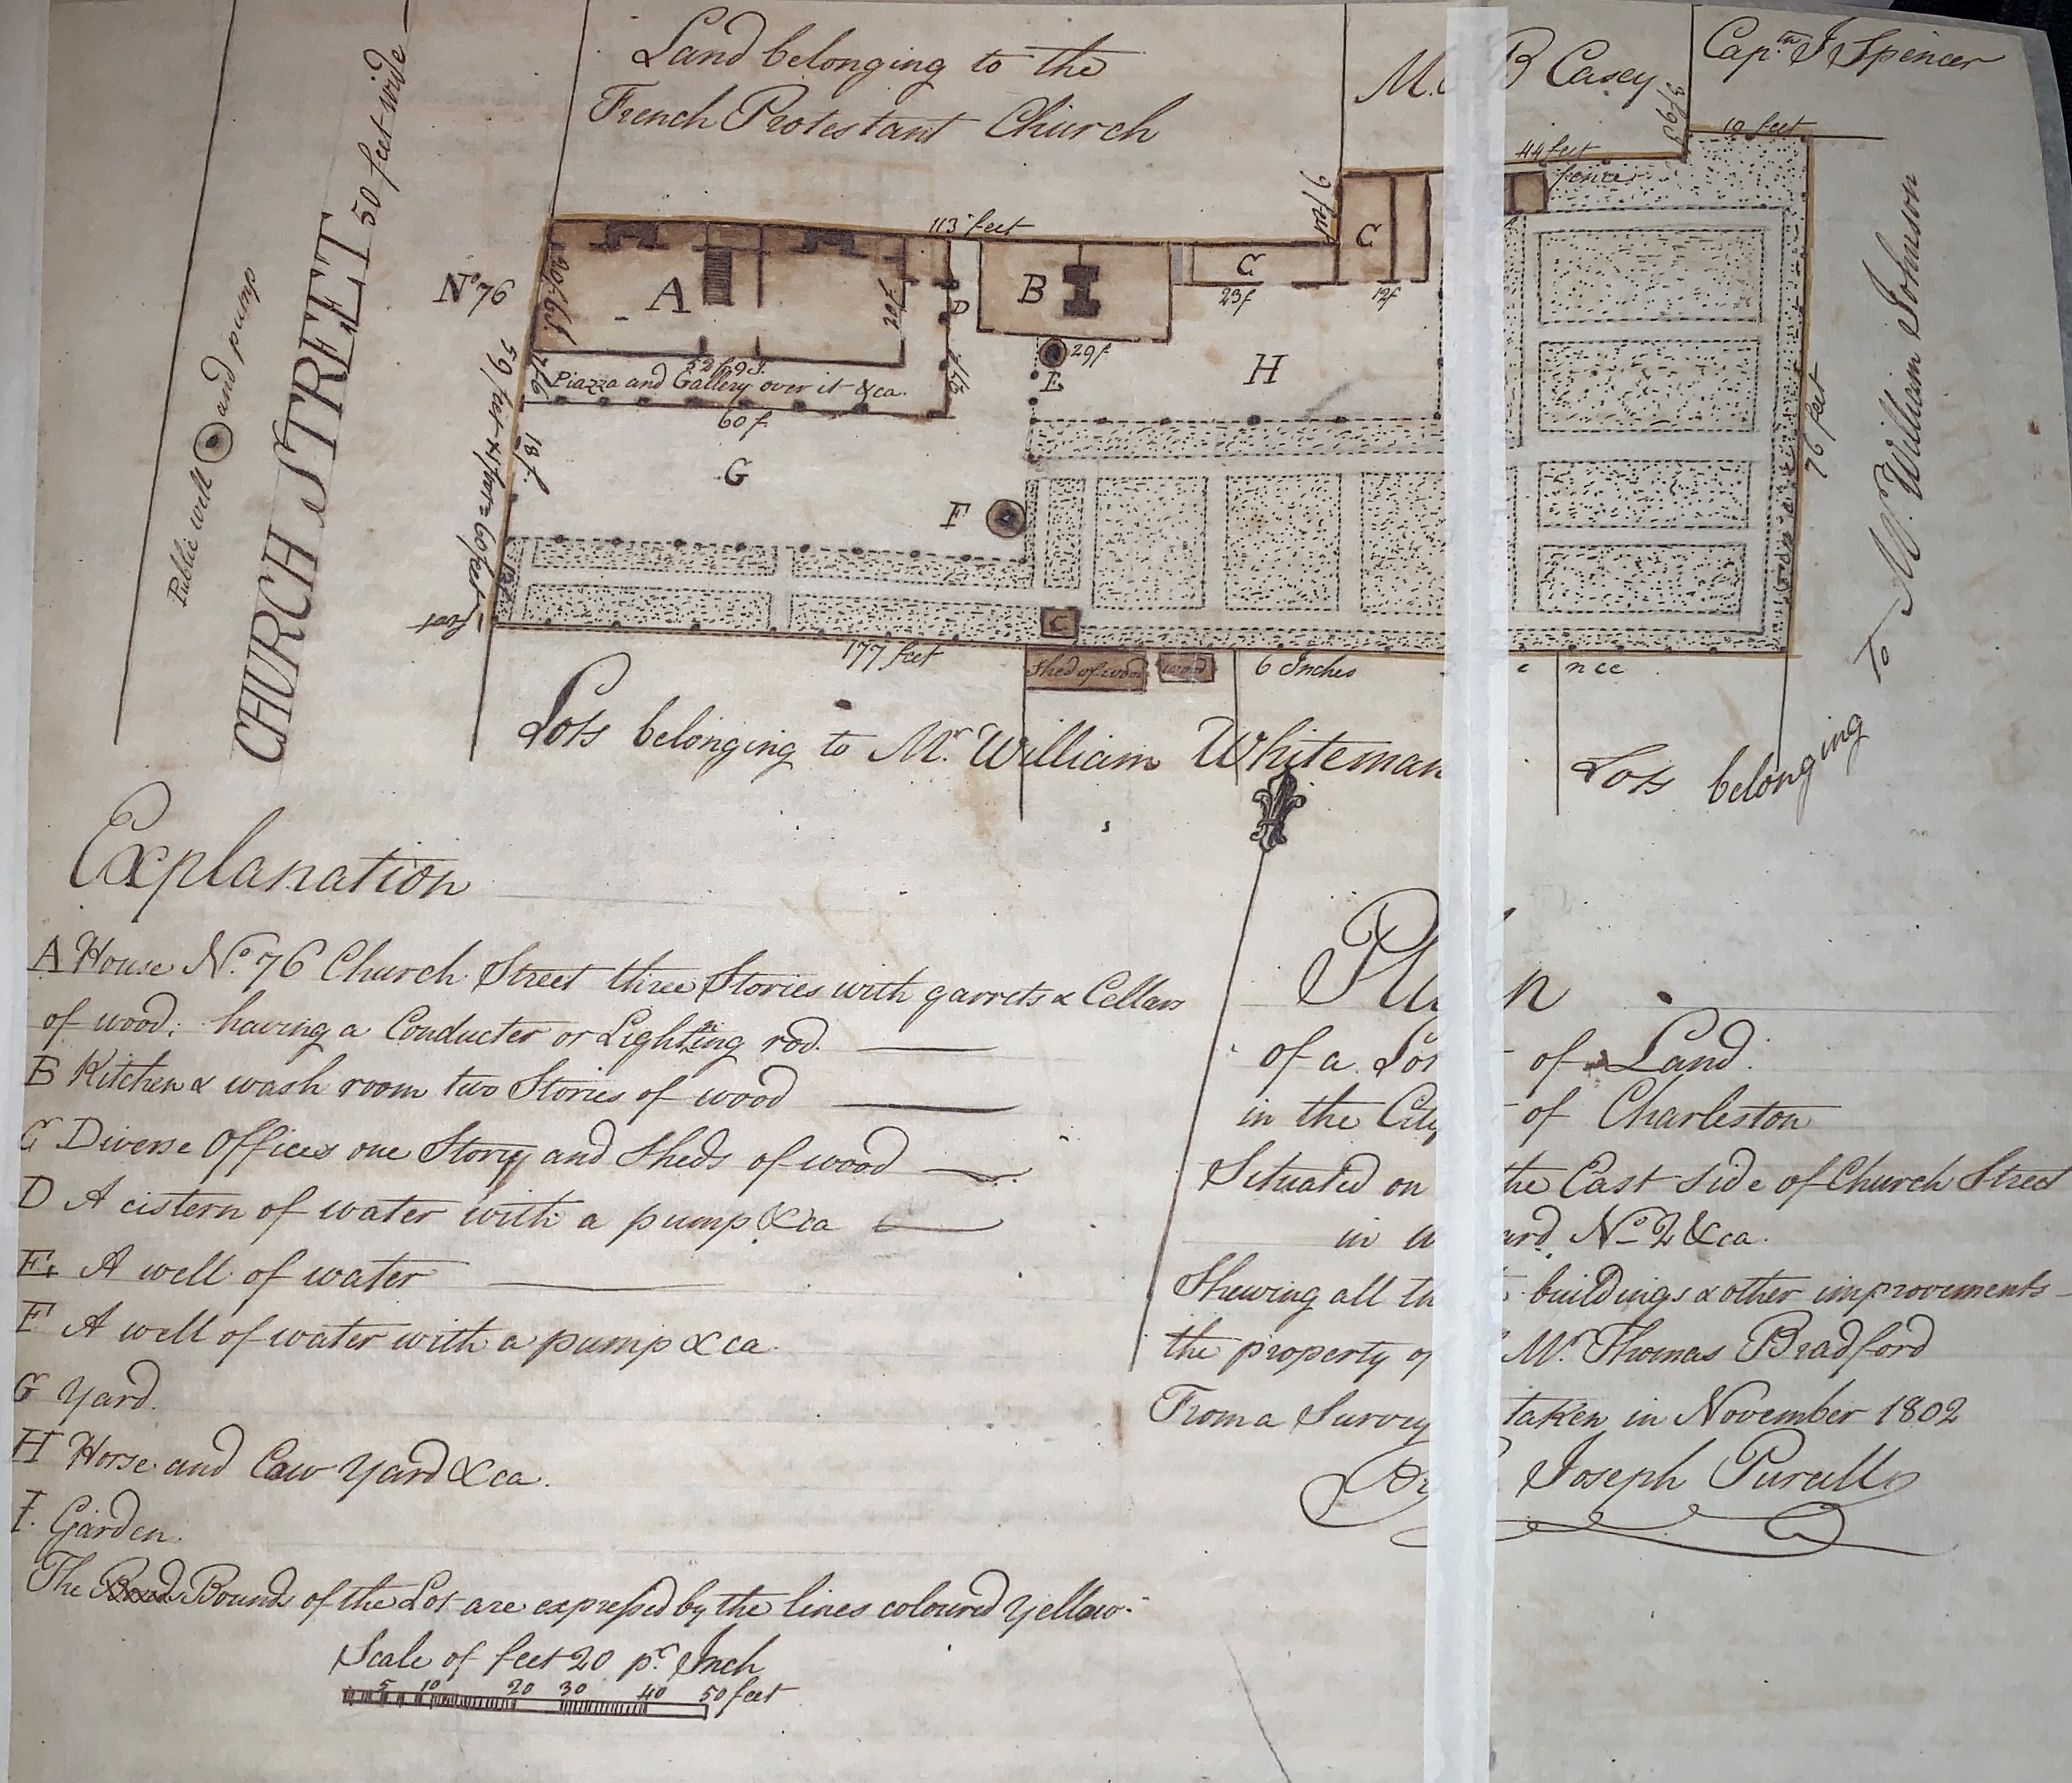 Land belonging to the
French Protestant Church
B Casey
Cap.tn J Spencer
CHURCH STREET 50 feet wide
Public well and pump
No 76
113 feet
44 feet
fence
10 feet
A
B
C
C
D
E
F
G
H
C
20f
29f
23f
12f
52f 9I
Piazza and Gallery over it &ca.
60 f
18 f.
76 feet
177 feet
Shed of wood
wood
6 Inches
nce
Lots belonging to Mr. William Whiteman
Lots belonging To Mr. William Johnson
Explanation
A House No. 76 Church Street three Stories with garrets & Cellars
of wood: having a Conducter or Lighting rod.
B Kitchen & wash room two Stories of wood
C Diverse Offices one Story and Sheds of wood
D A cistern of water with a pump &ca
E. A well of water
F A well of water with a pump &ca.
G Yard.
H Horse and Cow Yard &ca.
I. Garden.
The Bounds of the Lot are expressed by the lines coloured Yellow.
Scale of feet 20 pr. Inch
5 10 20 30 40 50 feet
Pla n
of a Lot of Land.
in the City of Charleston
Situated on the East side of Church Street
in W ard No 2 &ca.
Shewing all the buildings & other improvements
the property of Mr. Thomas Bradford
From a Survey taken in November 1802
By Joseph Purcell